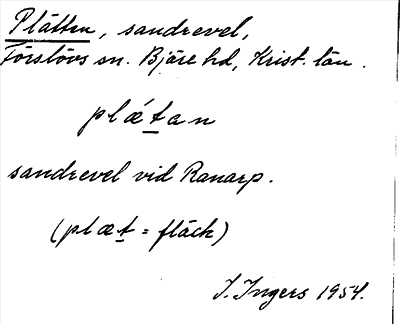 Plätten, sandrevel,
Förslövs sn. Bjäre hd, Krist. län.
plǽtan
sandrevel vid Ranarp.
(plæt = fläck)
I. Ingers 1954.